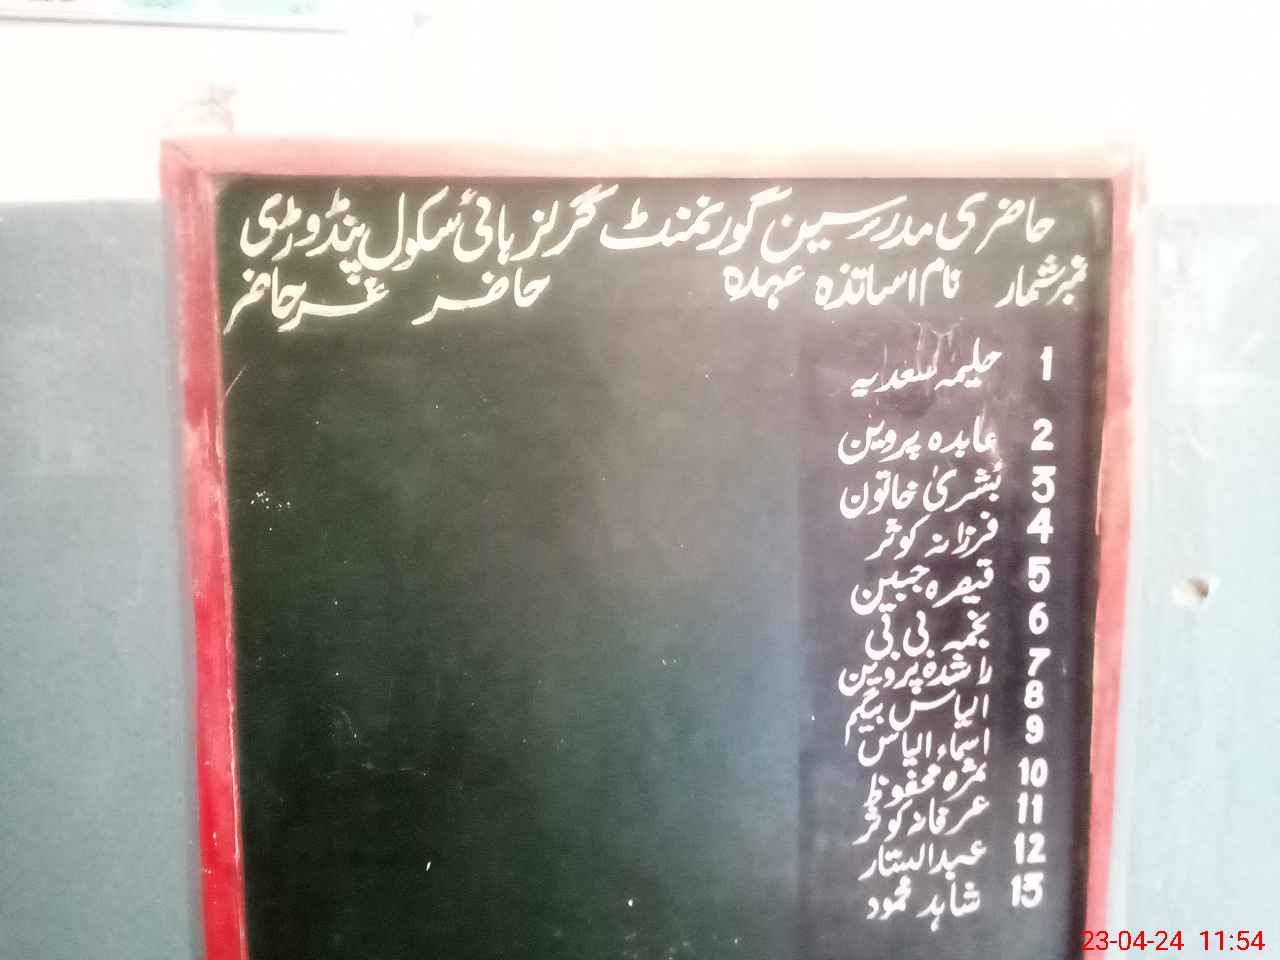 حاضری مدرسین گورنمنٹ گرلز ہائی سکول پنڈوڑی
نمبر شمار نام اساتذہ عہدہ حاضر غیر حاضر
1 حلیمہ سعدیہ
2 عابدہ پروین
3 بشریٰ خاتون
4 فرزانہ کوثر
5 قیصرہ جبین
6 نجمہ بی بی
7 راشدہ پروین
8 الیاس بیگم
9 اسماء الیاس
10 ثمرہ محفوظ
11 عرفانہ کوثر
12 عبدالستار
13 شاہد محمود
23-04-24 11:54